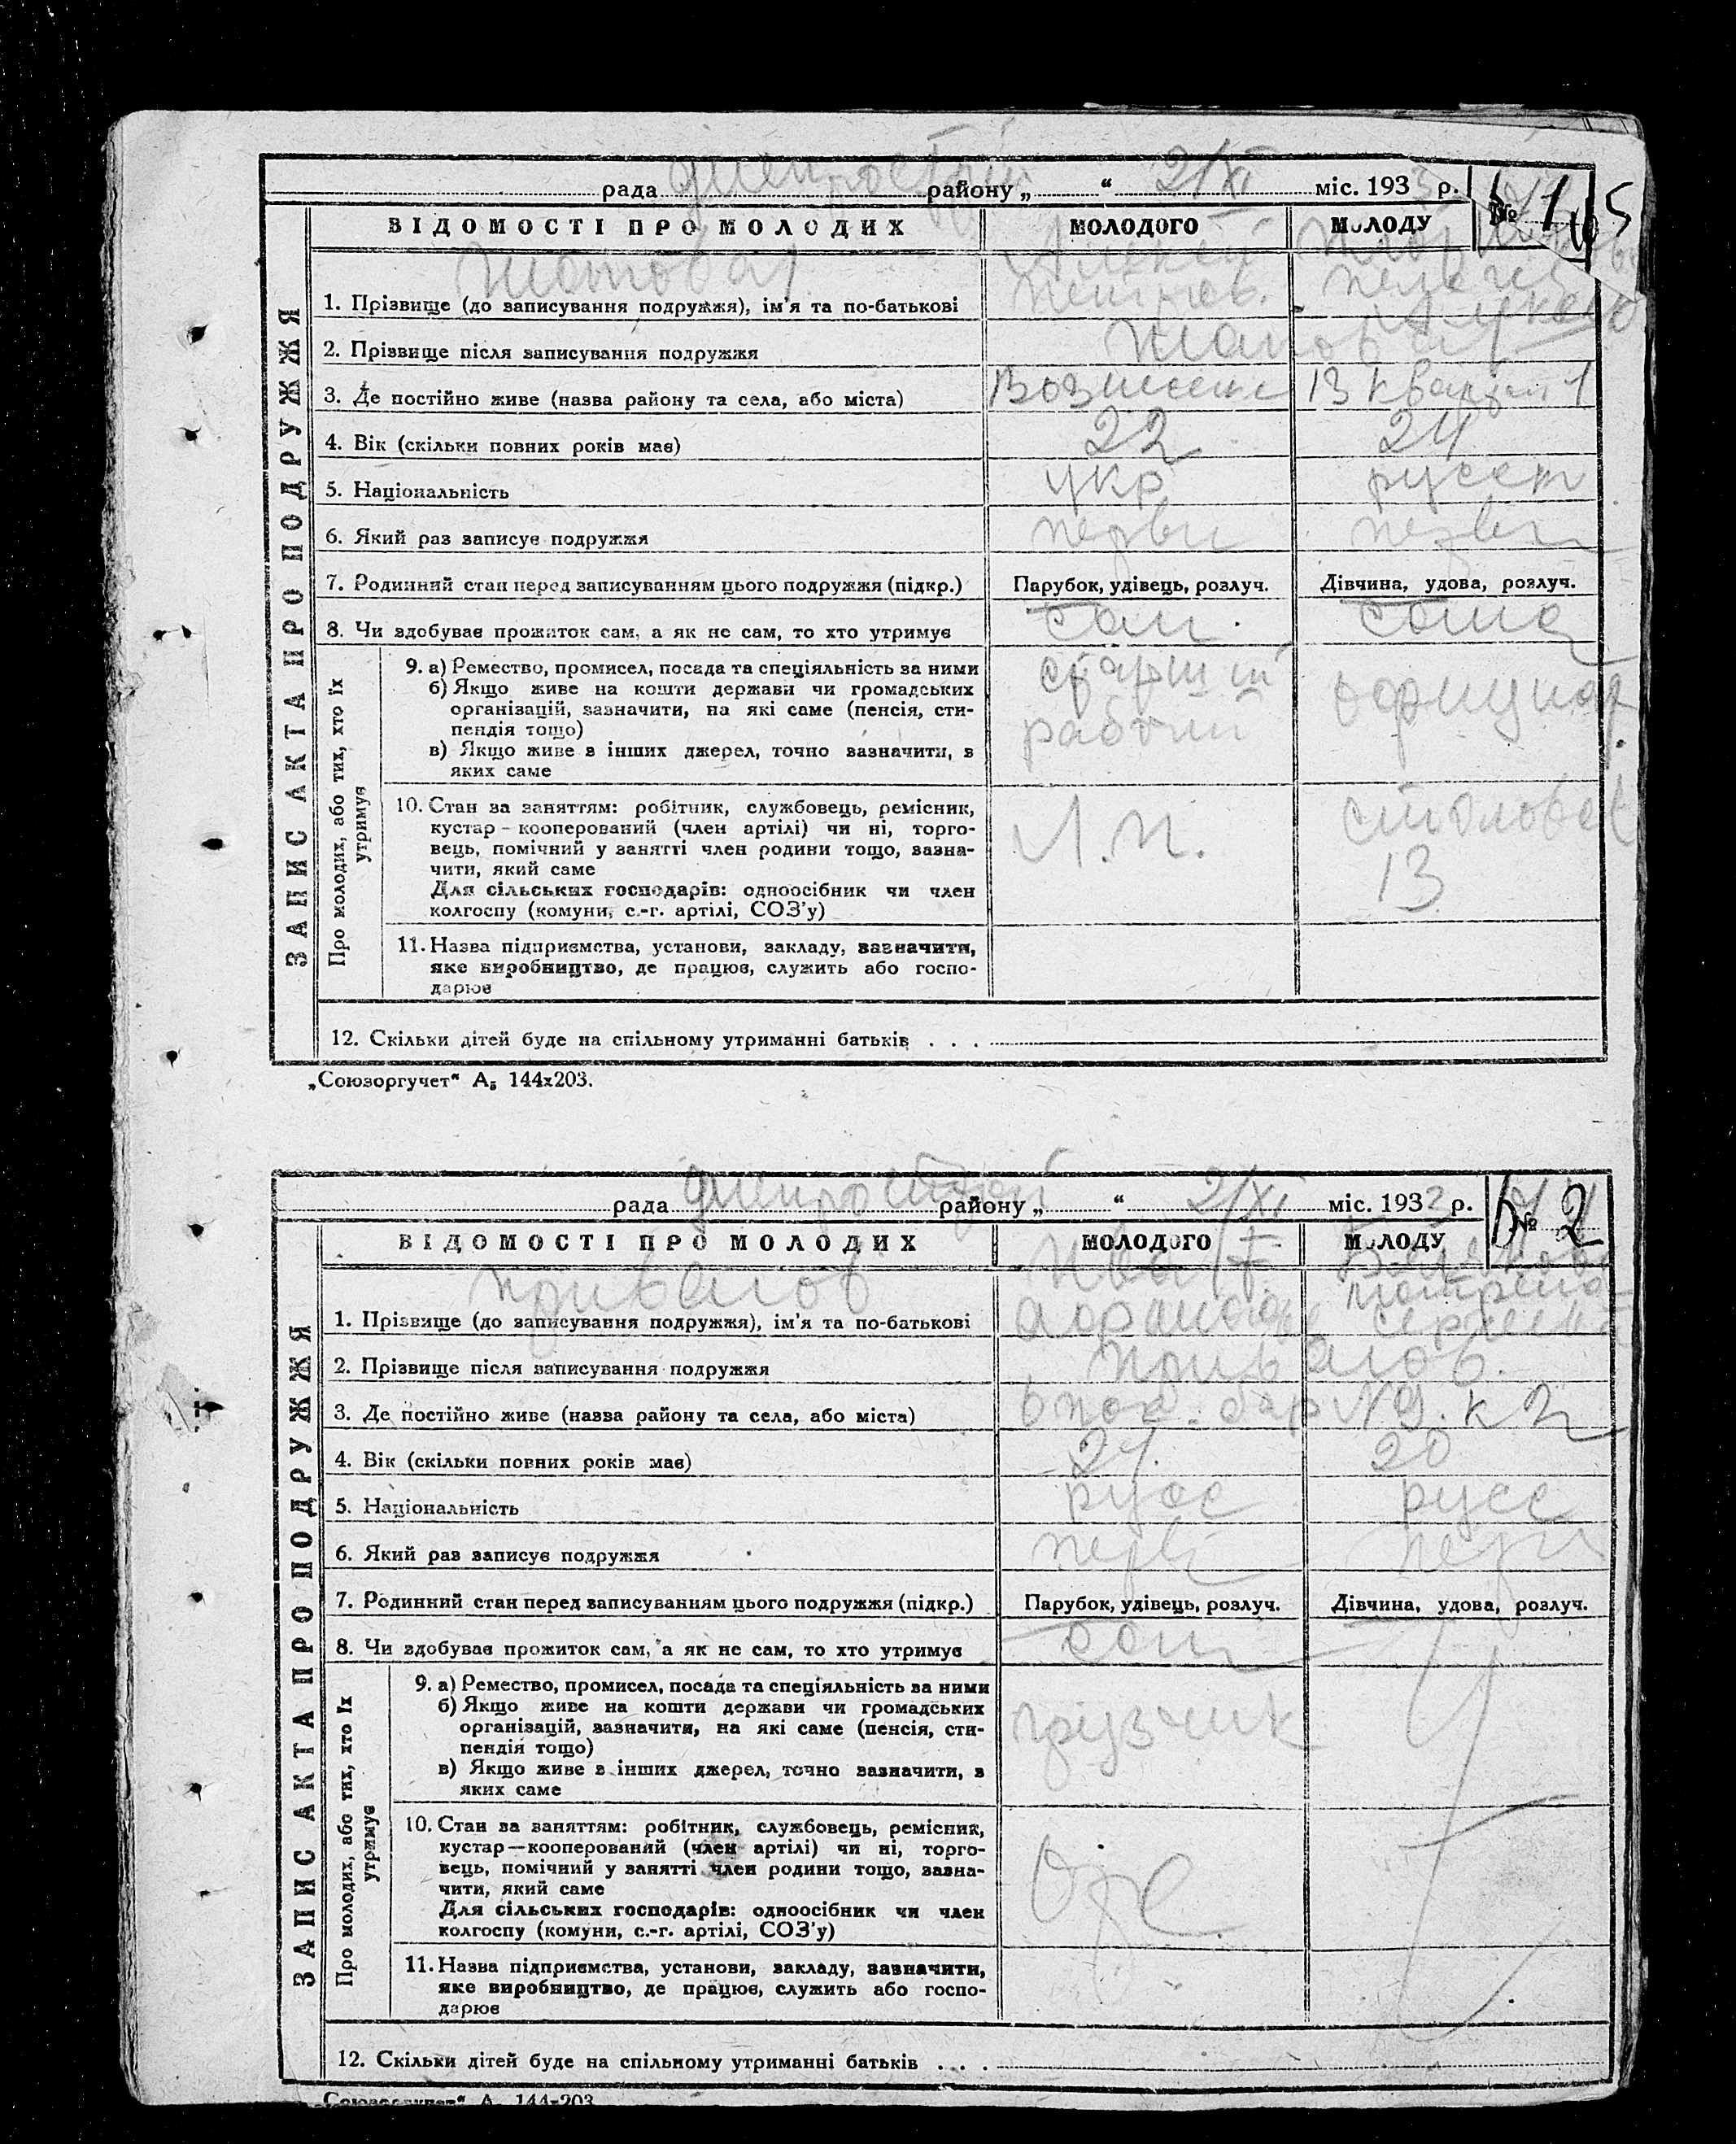 рада Днепрострой району „ “ 2/XI міс. 1933 р. № 1
ВІДОМОСТІ ПРО МОЛОДИХ МОЛОДОГО МОЛОДУ
ЗАПИС АКТА ПРО ПОДРУЖЖЯ
1. Прізвище (до записування подружжя), ім'я та по-батькові
2. Прізвище після записування подружжя
3. Де постійно живе (назва району та села, або міста) 13 квартал 1
4. Вік (скільки повних років має) 22 24
5. Національність укр русск
6. Який раз записує подружжя первы первы
7. Родинний стан перед записуванням цього подружжя (підкр.) Парубок, удівець, розлуч. Дівчина, удова, розлуч.
8. Чи здобуває прожиток сам, а як не сам, то хто утримує сам сама
Про молодих, або тих, хто їх утримує
9. а) Ремество, промисел, посада та спеціяльність за ними старший
б) Якщо живе на кошти держави чи громадських
організацій, зазначити, на які саме (пенсія, сти- рабочий официан
пендія тощо)
в) Якщо живе з інших джерел, точно зазначити, з
яких саме
10. Стан за заняттям: робітник, службовець, ремісник, столовая
кустар – кооперований (член артілі) чи ні, торго- 13
вець, помічний у занятті член родини тощо, зазна-
чити, який саме
Для сільських господарів: одноосібник чи член
колгоспу (комуни, с.-г. артілі, СОЗ'у)
11. Назва підприємства, установи, закладу, зазначити,
яке виробництво, де працює, служить або госпо-
дарює
12. Скільки дітей буде на спільному утриманні батьків . . .
„Союзоргучет“ А₅ 144х203.
рада Днепрострой району „ “ 2/XI міс. 1933 р. № 2
ВІДОМОСТІ ПРО МОЛОДИХ МОЛОДОГО МОЛОДУ
ЗАПИС АКТА ПРО ПОДРУЖЖЯ
Привалов
1. Прізвище (до записування подружжя), ім'я та по-батькові
2. Прізвище після записування подружжя Привалов.
3. Де постійно живе (назва району та села, або міста) бар №9. к 2
4. Вік (скільки повних років має) 20
5. Національність русс русс
6. Який раз записує подружжя перв перв
7. Родинний стан перед записуванням цього подружжя (підкр.) Парубок, удівець, розлуч. Дівчина, удова, розлуч.
8. Чи здобуває прожиток сам, а як не сам, то хто утримує сам
Про молодих, або тих, хто їх утримує
9. а) Ремество, промисел, посада та спеціяльність за ними
б) Якщо живе на кошти держави чи громадських грузчик
організацій, зазначити, на які саме (пенсія, сти-
пендія тощо)
в) Якщо живе з інших джерел, точно зазначити, з
яких саме
10. Стан за заняттям: робітник, службовець, ремісник,
кустар—кооперований (член артілі) чи ні, торго-
вець, помічний у занятті член родини тощо, зазна-
чити, який саме
Для сільських господарів: одноосібник чи член
колгоспу (комуни, с.-г. артілі, СОЗ'у)
11. Назва підприємства, установи, закладу, зазначити,
яке виробництво, де працює, служить або госпо-
дарює
12. Скільки дітей буде на спільному утриманні батьків . . .
„Союзоргучет“ А₅ 144х203